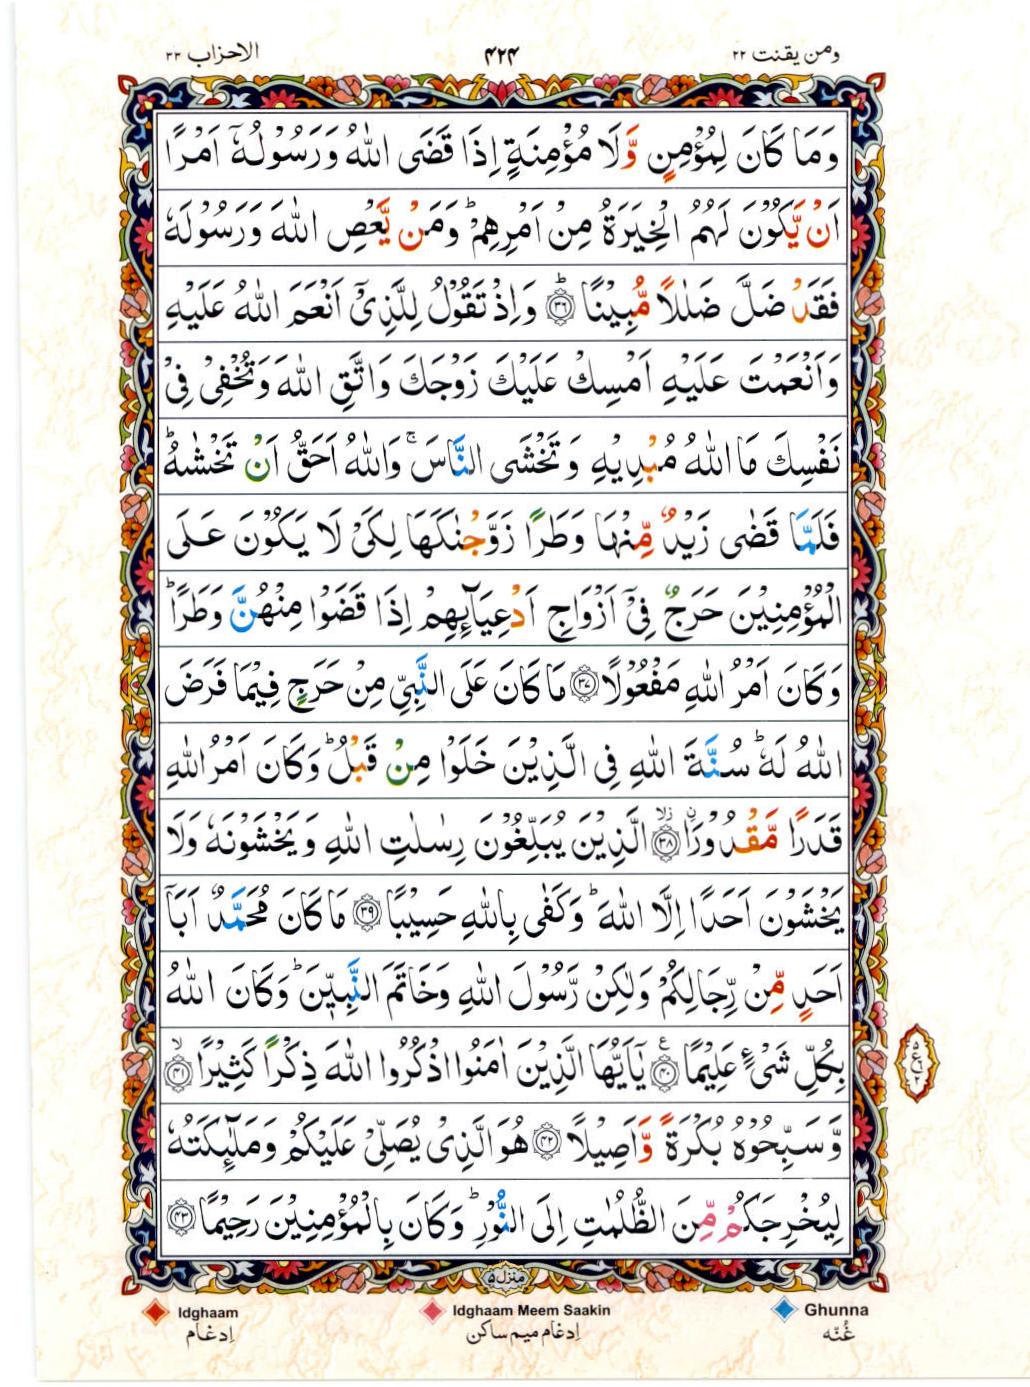 ومن يقنت ٢٢
۴۲۴
الاحزاب ٣٣
وَمَا كَانَ لِمُؤْمِنٍ وَّلَا مُؤْمِنَةٍ اِذَا قَضَى اللّٰهُ وَرَسُوْلُهٗۤ اَمْرًا
اَنْ يَّكُوْنَ لَهُمُ الْخِيَرَةُ مِنْ اَمْرِهِمْ ؕ وَمَنْ يَّعْصِ اللّٰهَ وَرَسُوْلَهٗ
فَقَدْ ضَلَّ ضَلٰلًا مُّبِيْنًا ؕ ﴿۳۶﴾ وَاِذْ تَقُوْلُ لِلَّذِيْۤ اَنْعَمَ اللّٰهُ عَلَيْهِ
وَاَنْعَمْتَ عَلَيْهِ اَمْسِكْ عَلَيْكَ زَوْجَكَ وَاتَّقِ اللّٰهَ وَتُخْفِيْ فِيْ
نَفْسِكَ مَا اللّٰهُ مُبْدِيْهِ وَتَخْشَى النَّاسَ ۚ وَاللّٰهُ اَحَقُّ اَنْ تَخْشٰىهُ ؕ
فَلَمَّا قَضٰى زَيْدٌ مِّنْهَا وَطَرًا زَوَّجْنٰكَهَا لِكَيْ لَا يَكُوْنَ عَلَى
الْمُؤْمِنِيْنَ حَرَجٌ فِيْۤ اَزْوَاجِ اَدْعِيَآىِٕهِمْ اِذَا قَضَوْا مِنْهُنَّ وَطَرًا ؕ
وَكَانَ اَمْرُ اللّٰهِ مَفْعُوْلًا ﴿۳۷﴾ مَا كَانَ عَلَى النَّبِيِّ مِنْ حَرَجٍ فِيْمَا فَرَضَ
اللّٰهُ لَهٗ ؕ سُنَّةَ اللّٰهِ فِي الَّذِيْنَ خَلَوْا مِنْ قَبْلُ ؕ وَكَانَ اَمْرُ اللّٰهِ
قَدَرًا مَّقْدُوْرَا ۙ﴿۳۸﴾ الَّذِيْنَ يُبَلِّغُوْنَ رِسٰلٰتِ اللّٰهِ وَيَخْشَوْنَهٗ وَلَا
يَخْشَوْنَ اَحَدًا اِلَّا اللّٰهَ ؕ وَكَفٰى بِاللّٰهِ حَسِيْبًا ﴿۳۹﴾ مَا كَانَ مُحَمَّدٌ اَبَاۤ
اَحَدٍ مِّنْ رِّجَالِكُمْ وَلٰكِنْ رَّسُوْلَ اللّٰهِ وَخَاتَمَ النَّبِيّٖنَ ؕ وَكَانَ اللّٰهُ
بِكُلِّ شَيْءٍ عَلِيْمًا ۧ﴿۴۰﴾ يٰۤاَيُّهَا الَّذِيْنَ اٰمَنُوا اذْكُرُوا اللّٰهَ ذِكْرًا كَثِيْرًا ۙ﴿۴۱﴾
وَّسَبِّحُوْهُ بُكْرَةً وَّاَصِيْلًا ﴿۴۲﴾ هُوَ الَّذِيْ يُصَلِّيْ عَلَيْكُمْ وَمَلٰٓىِٕكَتُهٗ
لِيُخْرِجَكُمْ مِّنَ الظُّلُمٰتِ اِلَى النُّوْرِ ؕ وَكَانَ بِالْمُؤْمِنِيْنَ رَحِيْمًا ﴿۴۳﴾
منزل ۵
Idghaam
Idghaam Meem Saakin
Ghunna
اِدغام
اِدغام میم ساکن
غُنّہ